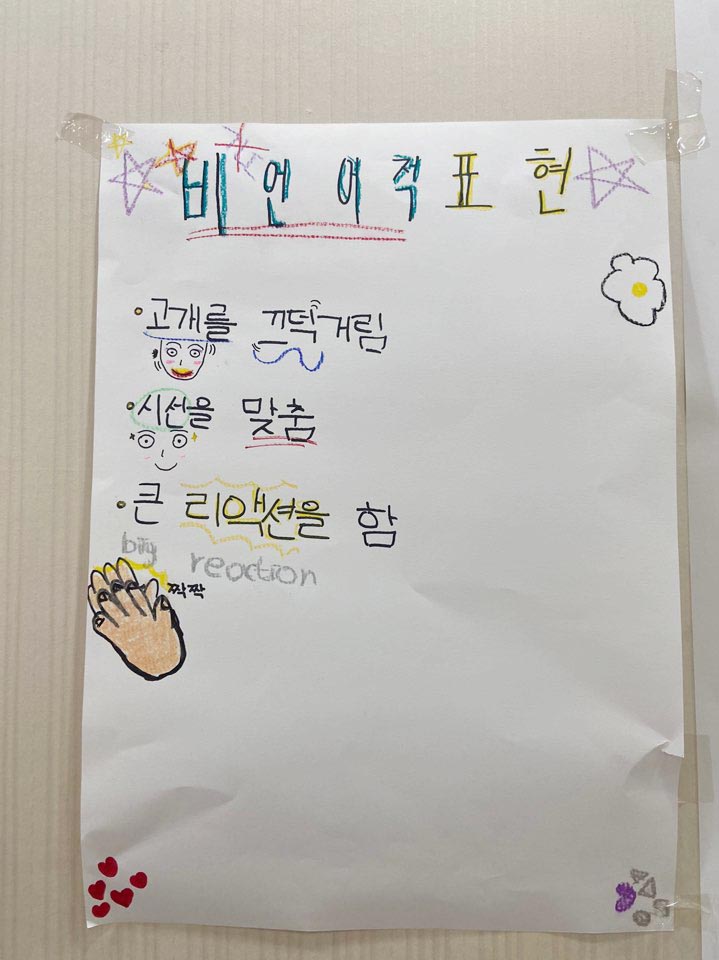 비언어적 표현
• 고개를 끄덕거림
• 시선을 맞춤
• 큰 리액션을 함
big reaction
짝짝